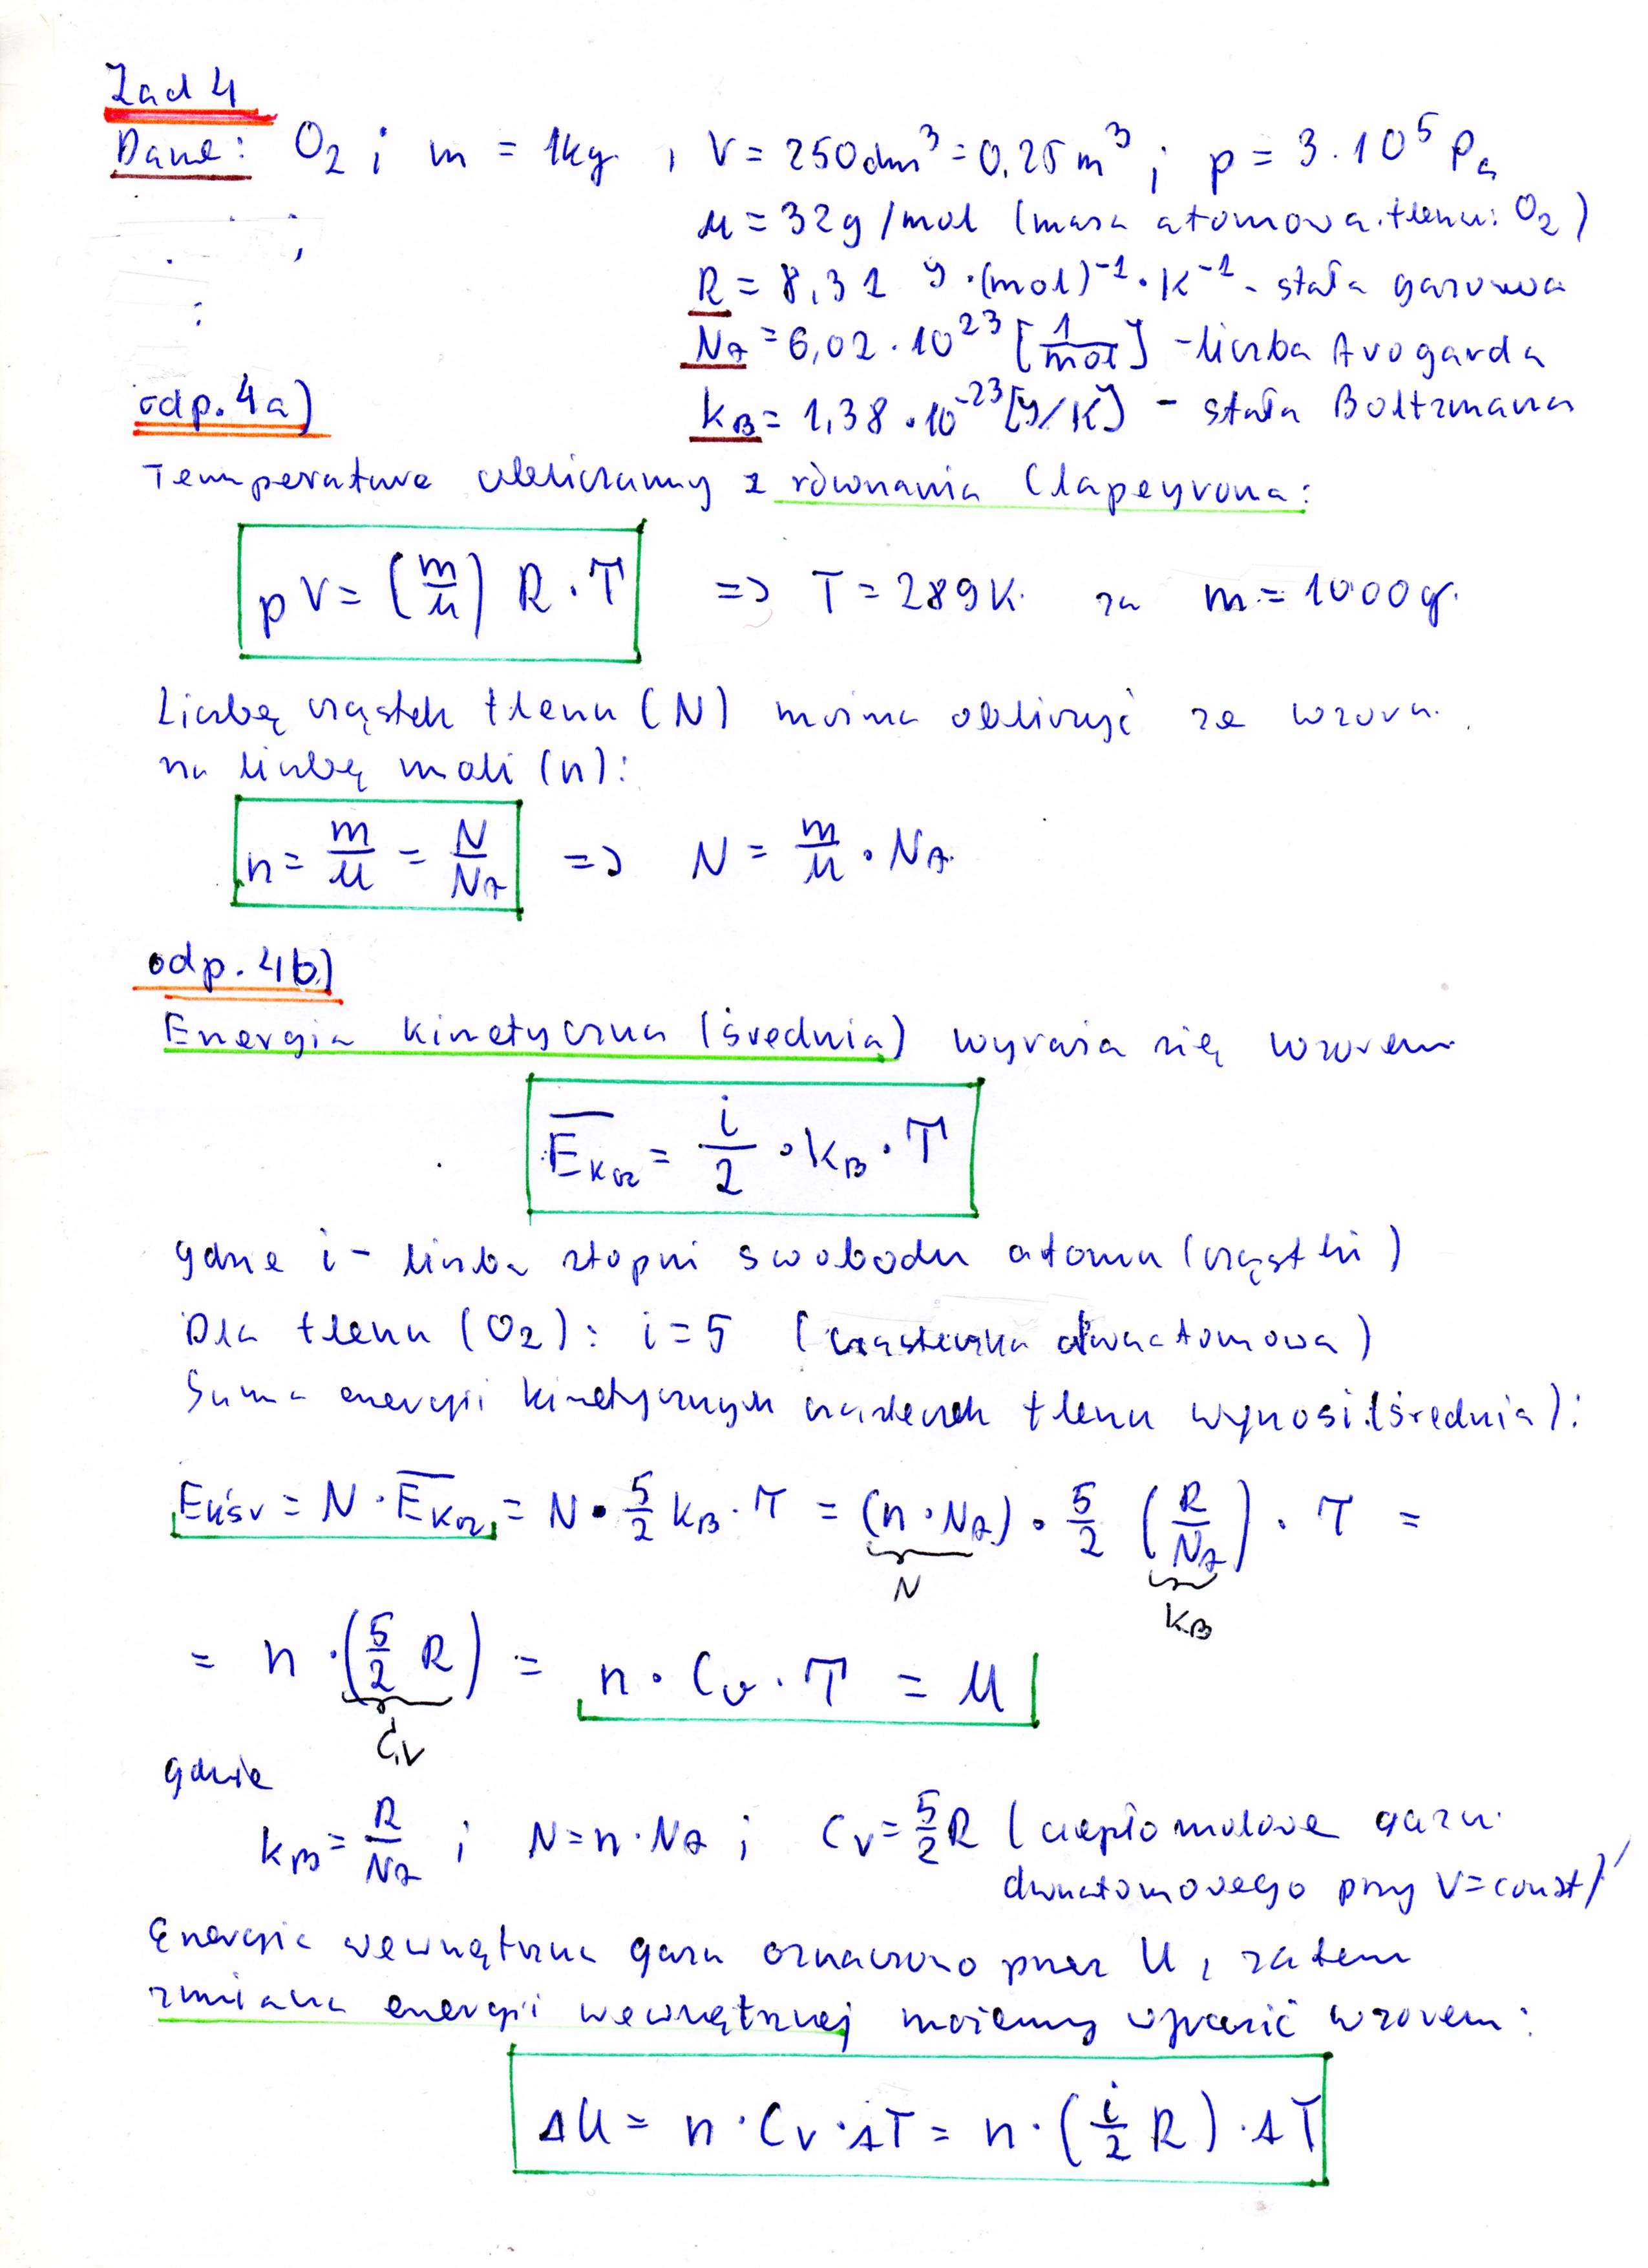 Zad 4
Dane: O₂ ; m = 1kg , V = 250dm³ = 0,25m³ ; p = 3·10⁵ Pa
μ = 32g/mol (masa atomowa tlenu: O₂)
R = 8,31 J·(mol)⁻¹·K⁻¹ - stała gazowa
N_A = 6,02·10²³ [1/mol] - liczba Avogarda
odp. 4a)
k_B = 1,38·10⁻²³ [J/K] - stała Boltzmana
Temperature obliczamy z równania Clapeyrona:
pV = (m/μ) R·T => T = 289K za m = 1000g.
Liczbę cząstek tlenu (N) można obliczyć ze wzoru
na liczbę moli (n):
n = m/μ = N/N_A => N = m/μ · N_A
odp. 4b)
Energia kinetyczna (średnia) wyraża się wzorem
E̅_kO₂ = i/2 · k_B · T
gdzie i - liczba stopni swobodu atomu (cząstki)
Dla tlenu (O₂): i = 5 (cząsteczka dwuatomowa)
Suma energii kinetycznych cząsteczek tlenu wynosi (średnia):
E_kśr = N·E̅_kO₂ = N · 5/2 k_B · T = (n·N_A) · 5/2 (R/N_A) · T =
N k_B
= n · (5/2 R) = n · C_v · T = U
C_V
gdzie
k_B = R/N_A ; N = n·N_A ; C_V = 5/2 R (ciepło molowe gazu
dwuatomowego przy V = const)
Energie wewnętrzna gazu oznaczono przez U, zatem
zmiana energii wewnętrznej możemy wyrazić wzorem:
ΔU = n·C_V·ΔT = n·(i/2 R)·ΔT